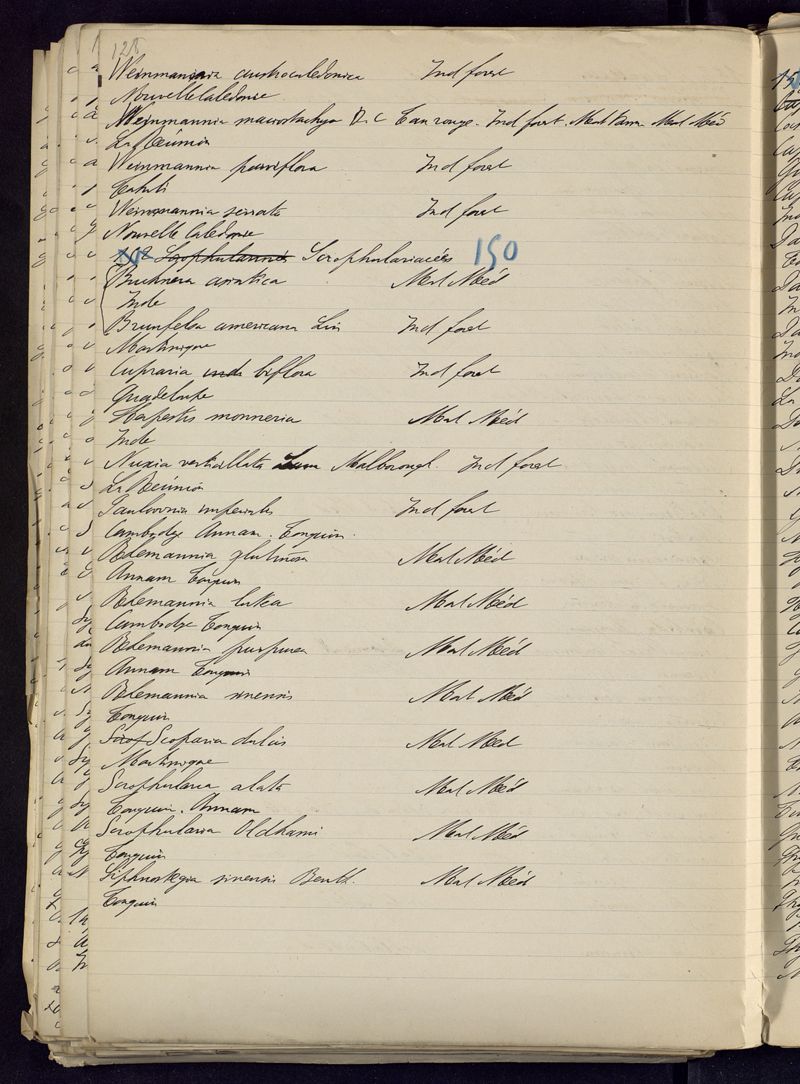 128
Weinmannia austrocaledonica Ind forest
Nouvelle Caledonie
Weinmannia macrostachya D.C Tan rouge. Ind forest Mat Tann Mat Méd
La Réunion
Weinmannia parviflora Ind forest
Tahiti
Weinmannia serrata Ind forest
Nouvelle Caledonie
Scrophularinées Scrophulariacées 150
Buchnera asiatica Mat Méd
Inde
Brunfelsa americana Lin Ind forest
Martinique
Capraria biflora Ind forest
Guadeloupe
Herpestis monneria Mat Méd
Inde
Nuxia verticillata Lam Malbrough. Ind forest
La Réunion
Paulownia imperialis Ind forest
Cambodge Annam. Tonquin.
Rehmannia glutinosa Mat Méd
Annam Tonquin
Rehmannia lutea Mat Méd
Cambodge Tonquin
Rehmannia purpurea Mat Méd
Annam Tonquin
Rehmannia sinensis Mat Méd
Tonquin
Scrof Scoparia dulcis Mat Méd
Martinique
Scrophularia alata Mat Méd
Tonquin. Annam
Scrophularia Oldhami Mat Méd
Tonquin
Siphnostegia sinensis Benth. Mat Méd
Tonquin